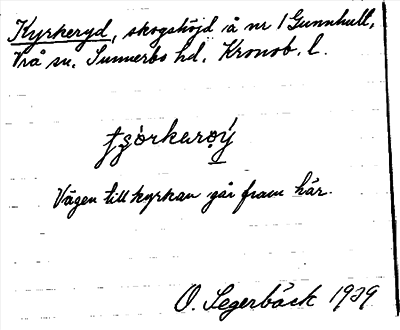 Kyrkeryd, skogshöjd å nr 1 Gunnhult,
Vrå sn. Sunnerbo hd. Kronob. l.
Vägen till kyrkan går fram här.
O. Segerbäck 1929